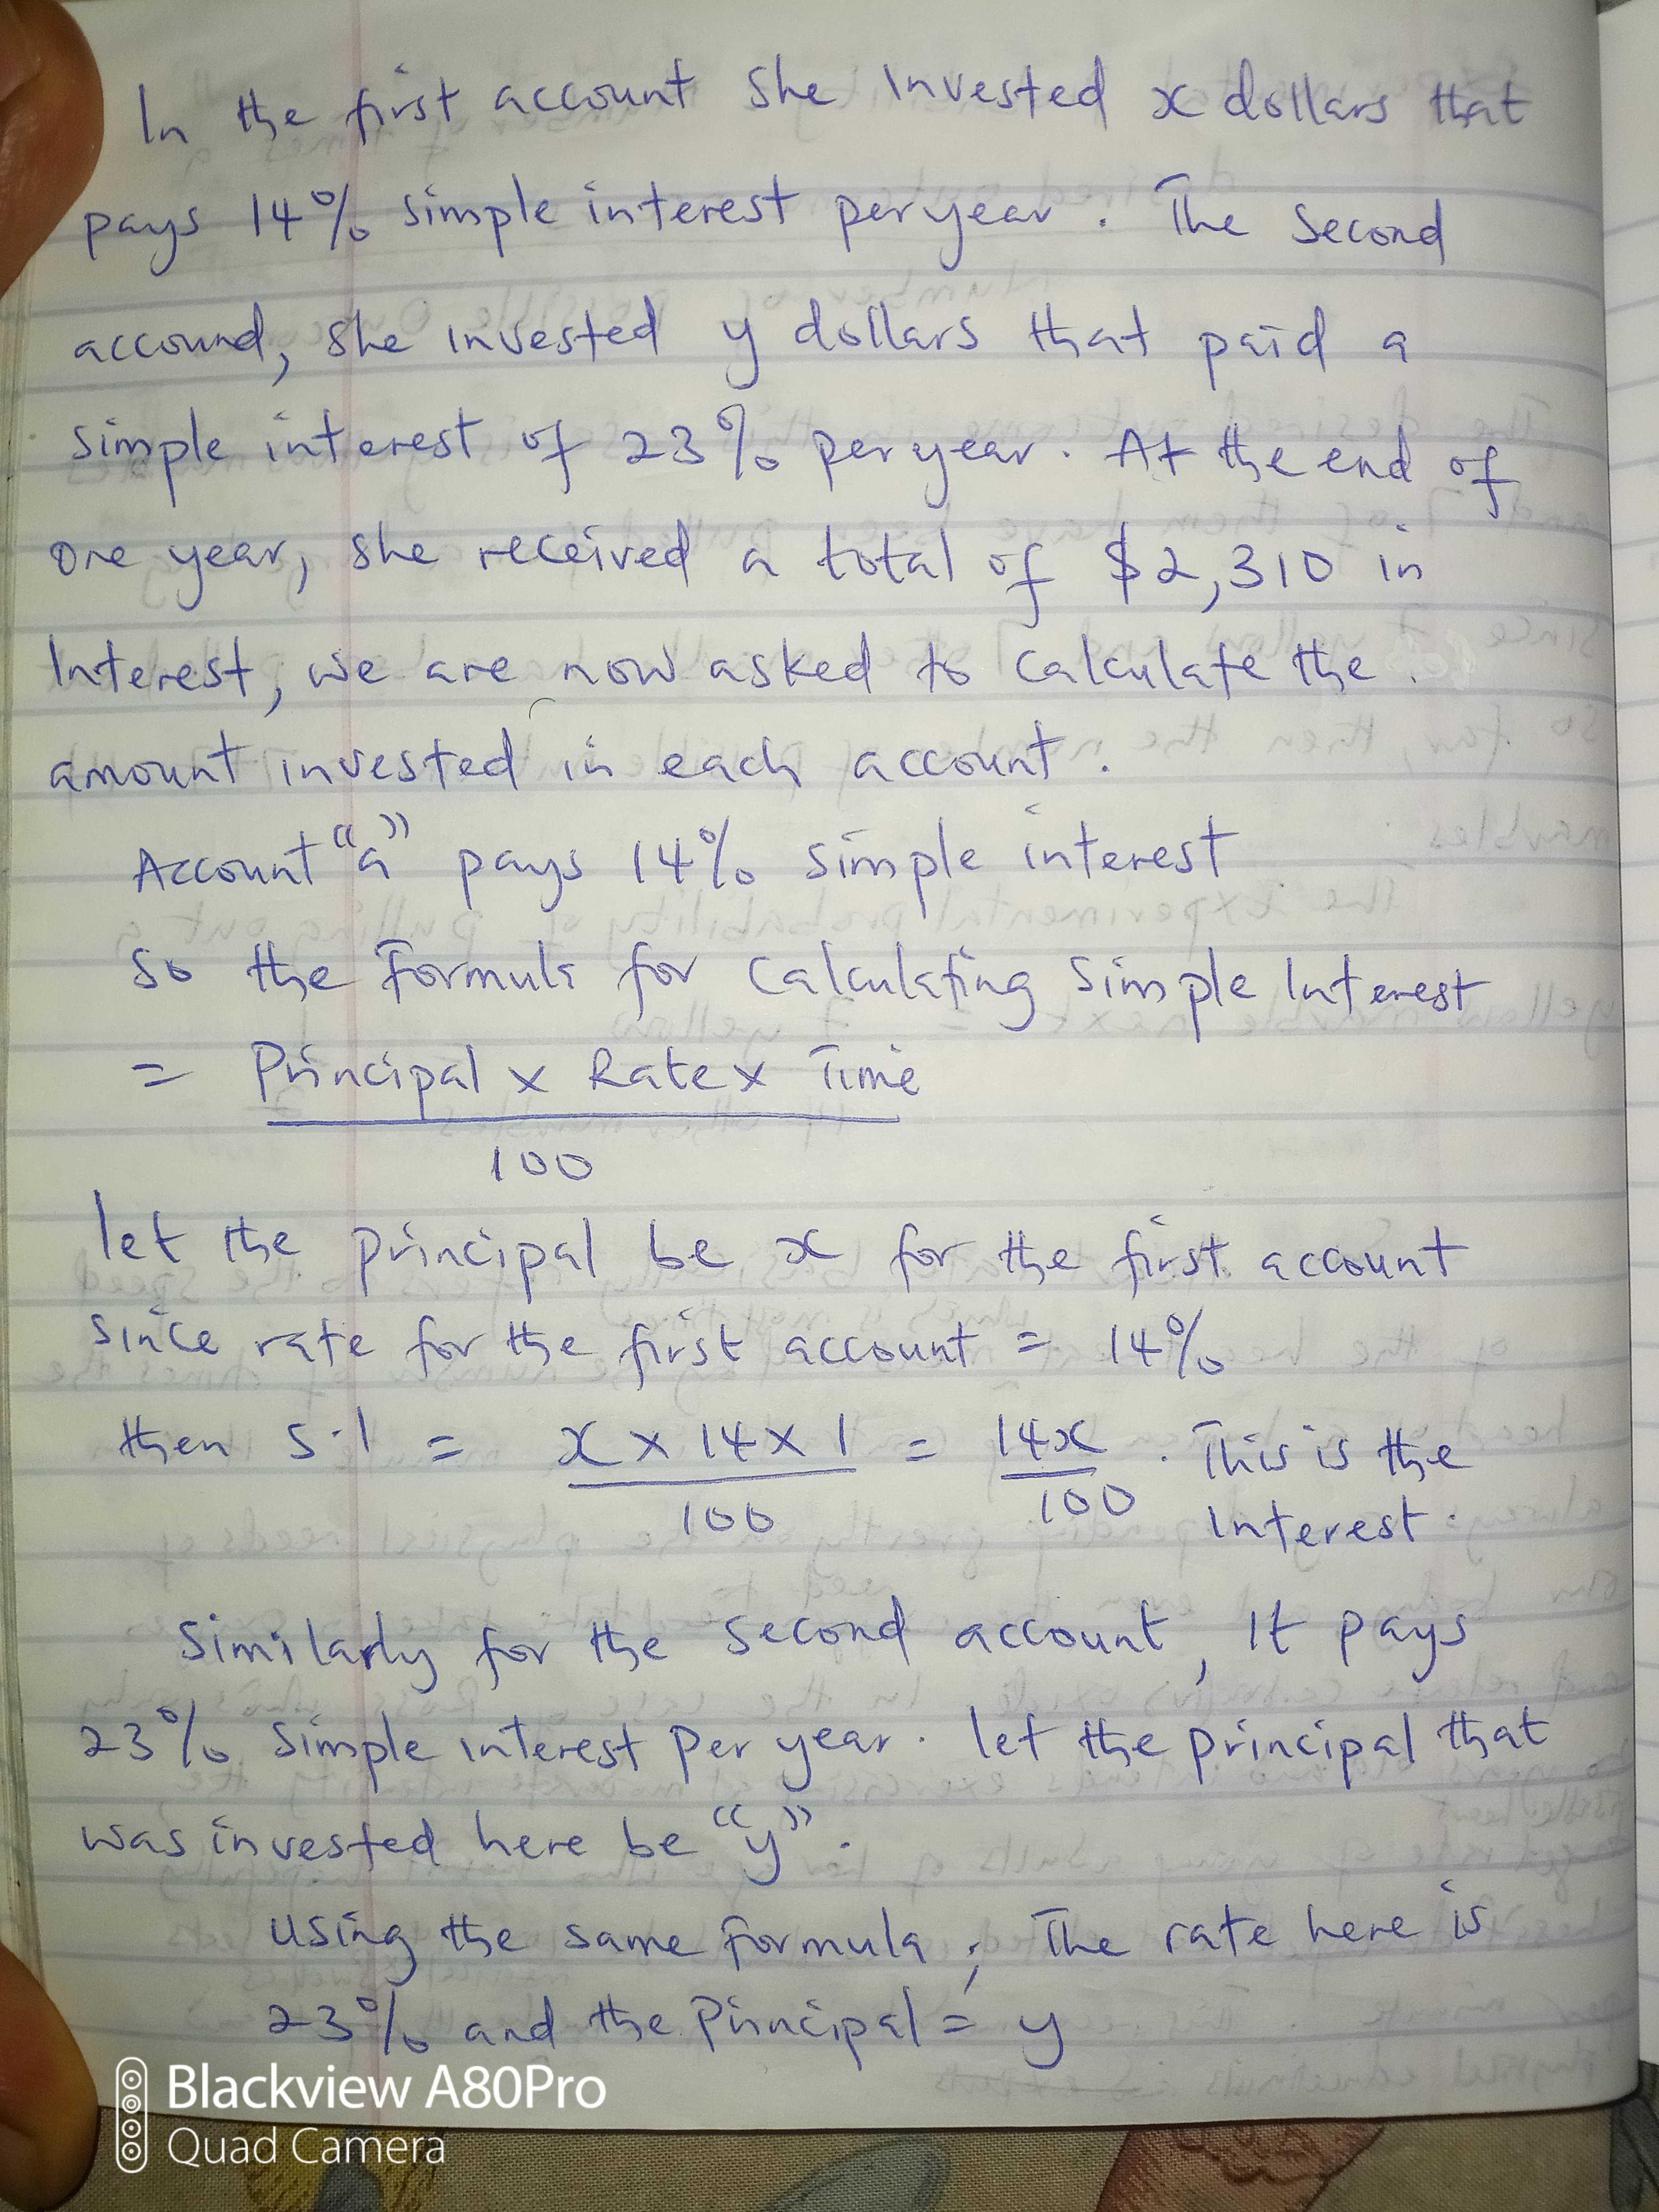 In the first account she Invested x dollars that
pays 14% simple interest per year. The Second
accound, she invested y dollars that paid a
simple interest of 23% per year. At the end of
One year, she received a total of $2,310 in
Interest, we are now asked to Calculate the
amount invested in each account.
Account "a" pays 14% simple interest
So the Formula for Calculating Simple Interest
= Principal x Rate x Time
100
let the principal be x for the first account
Since rate for the first account = 14%
then S.I = x x 14 x 1 = 14x . This is the
100 100 Interest.
Similarly for the Second account, It pays
23% Simple interest Per year. let the principal that
was invested here be "y".
Using the same Formula; The rate here is
23% and the Principal = y
Blackview A80Pro
Quad Camera